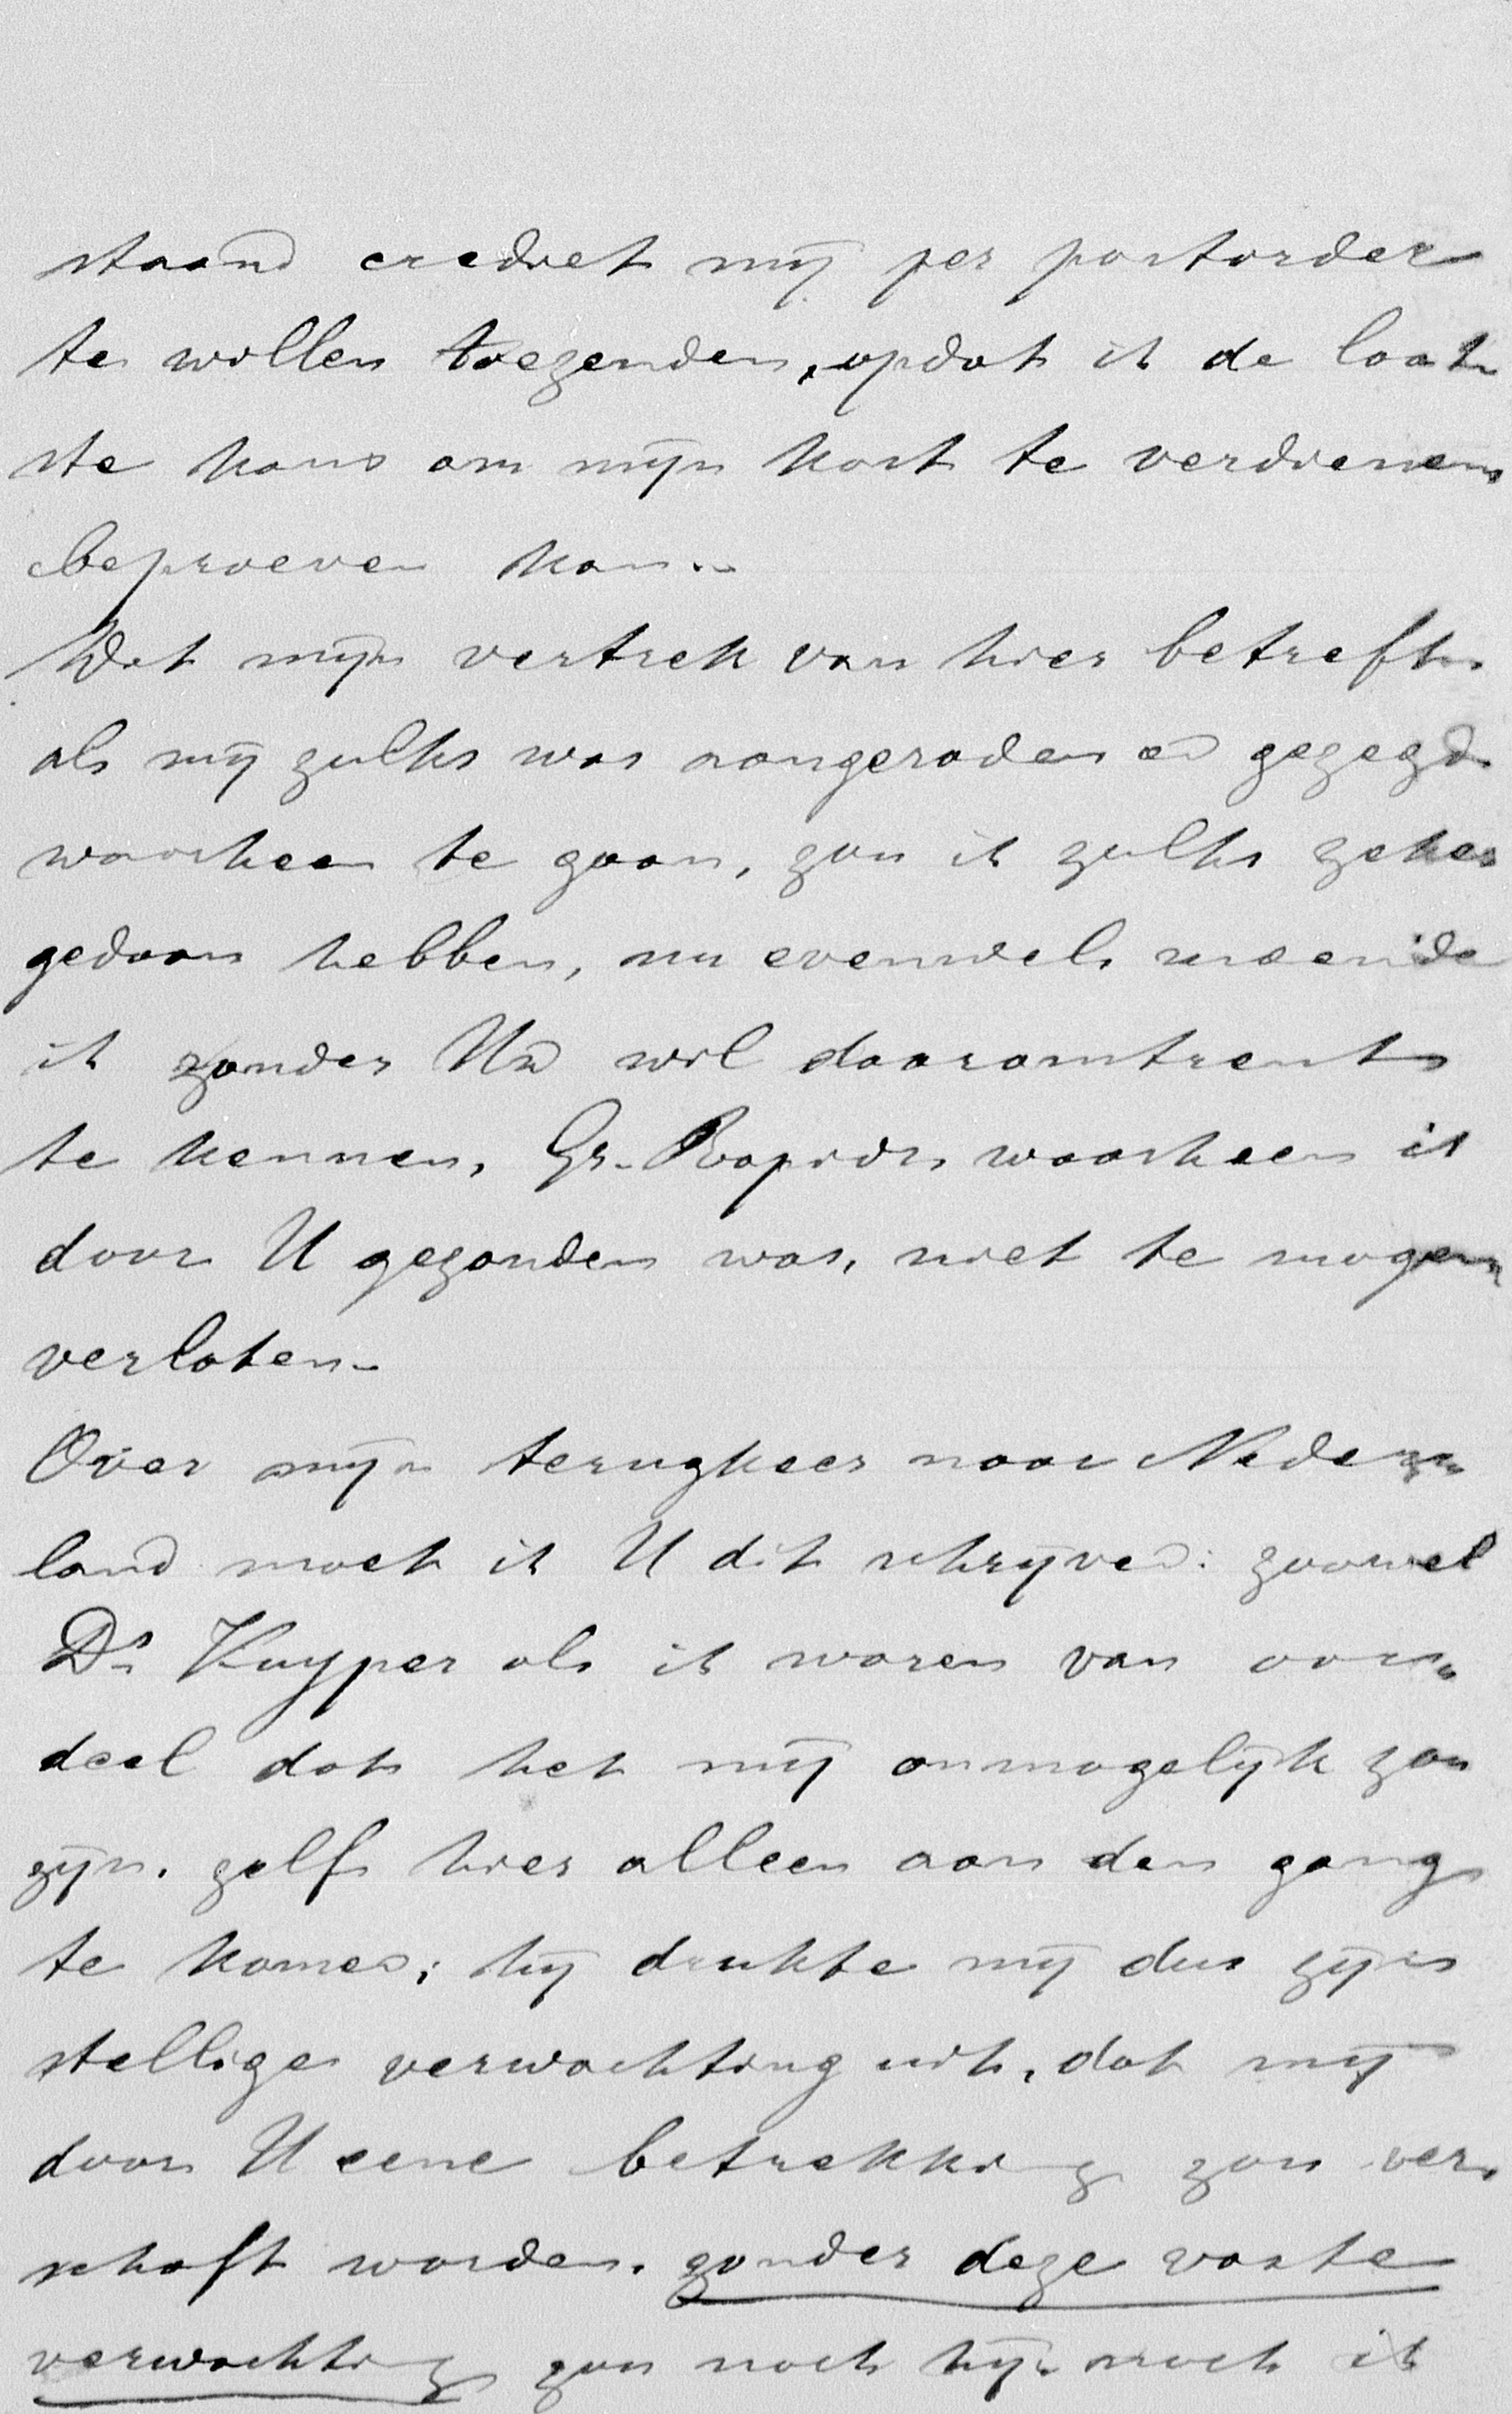 staand crediet mij per postorder
te willen toezenden, opdat ik de laat=
ste kans om mijn kost te verdienen
beproeven kan.-
Wat mijn vertrek van hier betreft
als mij zulks was aangeraden en gezegd
waarheen te gaan, zou ik zulks zeker
gedaan hebben, nu evenwel meende
ik zonder Uw wil daaromtrent
te kennen, Gr. Rapids, waarheen ik
door U gezonden was, niet te mogen
verlaten.-
Over mijn terugkeer naar Neder=
land moet ik U dit schrijven: zoowel
Ds Kuyper als ik waren van oor=
deel dat het mij onmogelijk zou
zijn, zelf hier alleen aan den gang
te komen; hij drukte mij dus zijn
stellige verwachting uit, dat mij
door U eene betrekking zou ver=
schaft worden. zonder deze vaste
verwachting zou noch hij noch ik